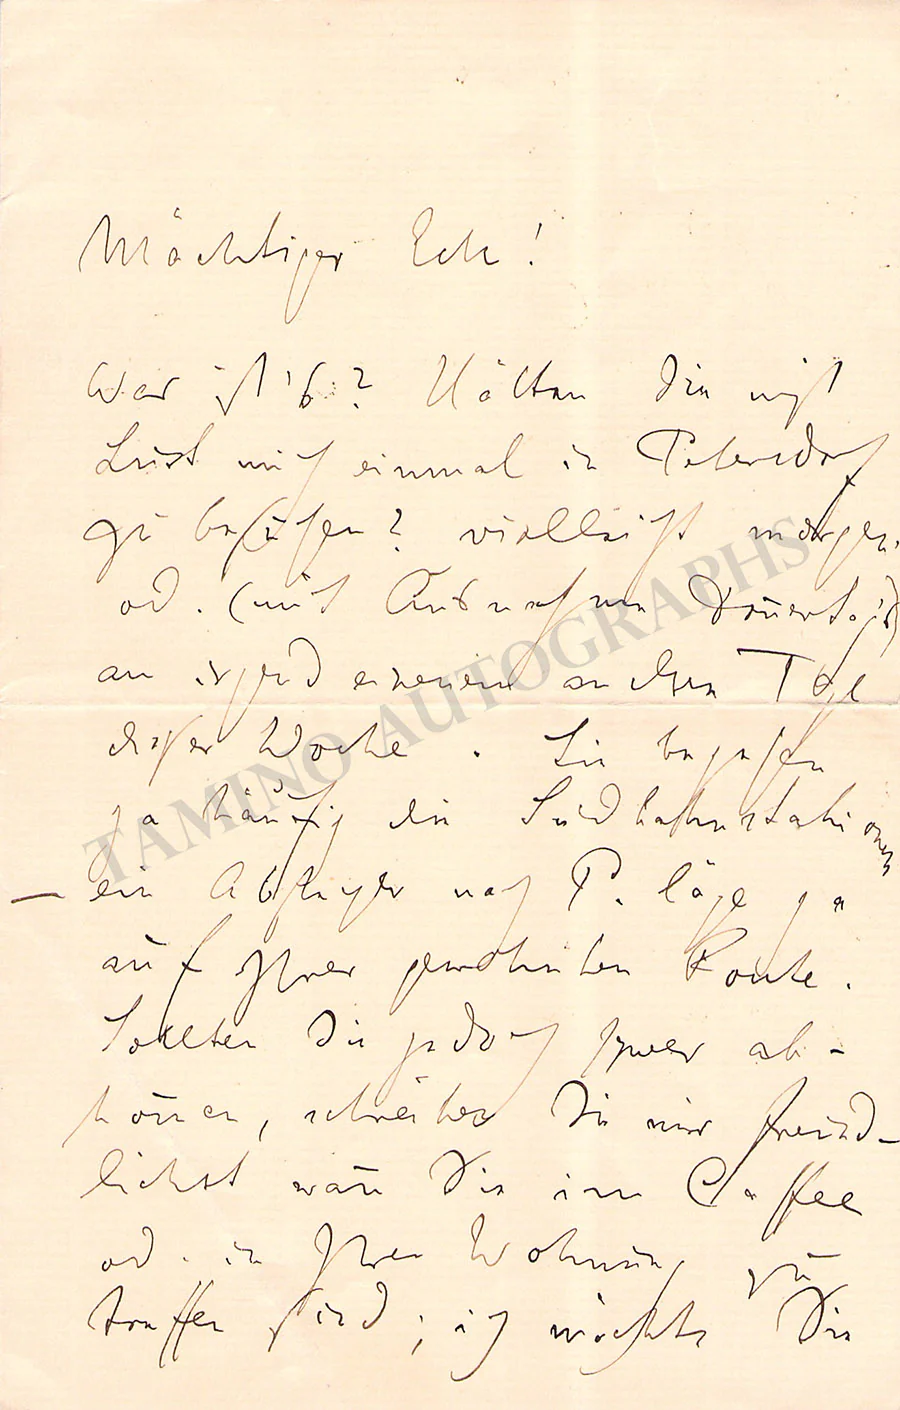 Mächtiger Eck!
Was ist's? Hätten Sie nicht
Lust mich einmal in Petersdorf
zu besuchen? vielleicht morgen
od. (mit Ausnahme Donnerstags)
an irgend einem andern Tage
dieser Woche. Sie begehen
ja häufig die Südbahnstationen
– ein Abstecher nach P. läge ja
auf Ihrer gewohnten Route.
Sollten Sie jedoch schwer ab-
können, schreiben Sie mir freund-
lichst wann Sie im Caffee
od. in Ihrer Wohnung zu
treffen sind; ich möchte Sie
TAMINO AUTOGRAPHS